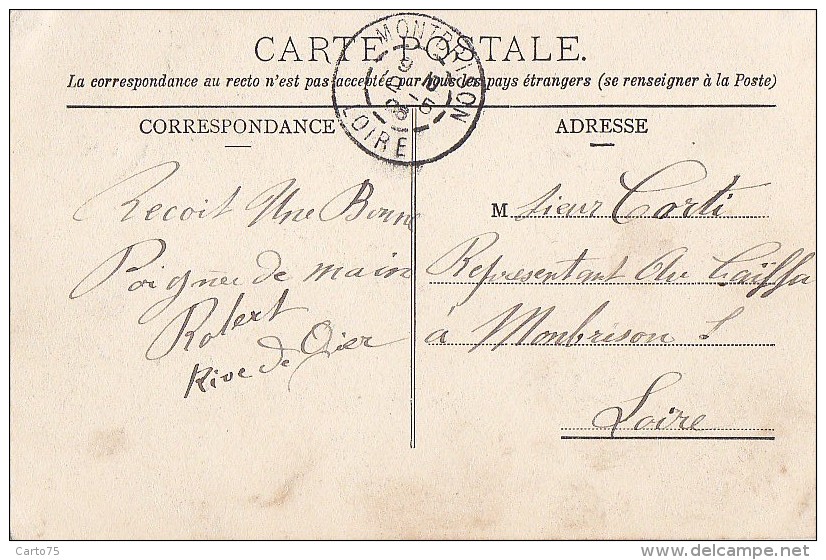 CARTE POSTALE.
La correspondance au recto n'est pas acceptée par tous les pays étrangers (se renseigner à la Poste)
MONTBRISON
LOIRE
CORRESPONDANCE
Recoit Une Bonne
Poignée de main
Robert
Rive de Gier
ADRESSE
M sieur Corti
Representant Au Caïffa
à Monbrison
Loire
Carto75
www.delcampe.net